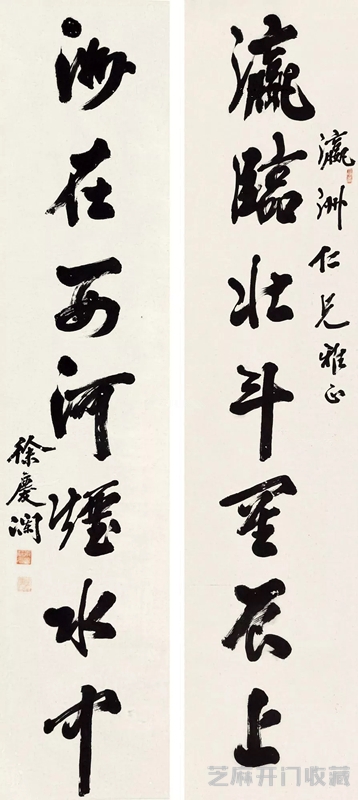 瀛洲仁兄雅正
瀛臨北斗星辰上
洲在西河煙水中
徐慶瀾
芝麻开门收藏